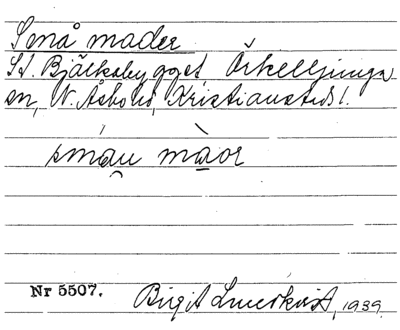 Små mader
St. Bjälkabygget, Örkelljunga
sn, N. Åsbo hd, Kristianstads l.
småu màor
Nr 5507.
Birgit Lindkvist, 1939.